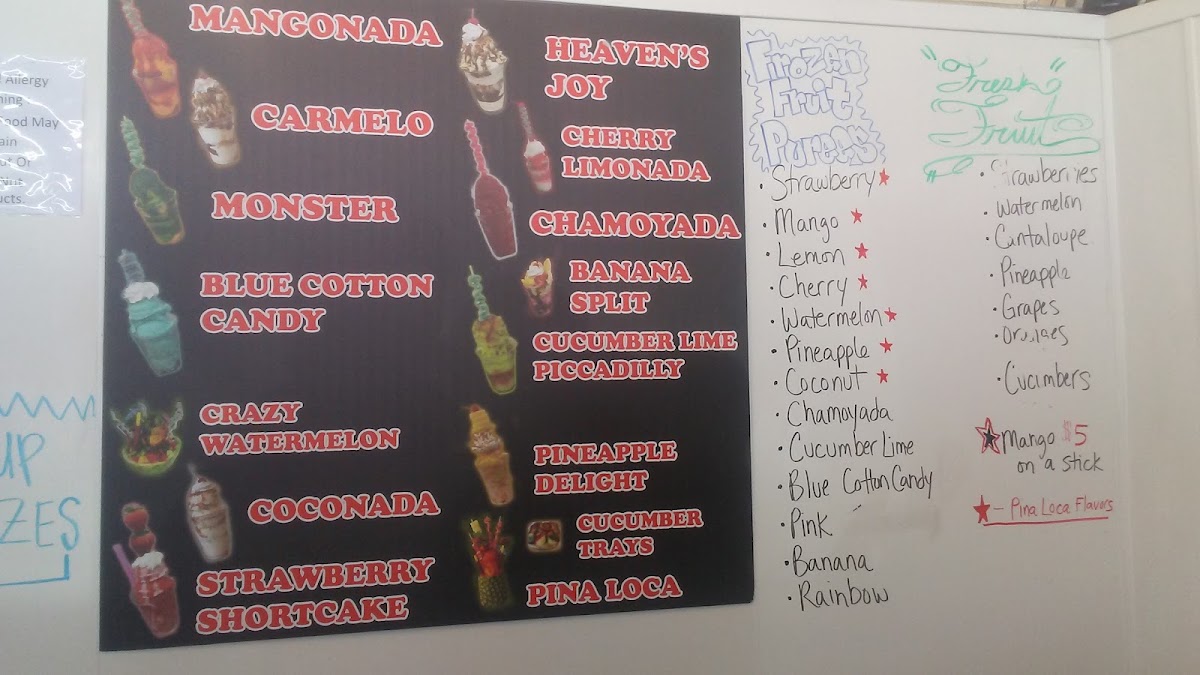 Allergy
ood May
ain
ut Or
Nut
ucts.
UP
ZES
MANGONADA
CARMELO
MONSTER
BLUE COTTON
CANDY
CRAZY
WATERMELON
COCONADA
STRAWBERRY
SHORTCAKE
HEAVEN'S
JOY
CHERRY
LIMONADA
CHAMOYADA
BANANA
SPLIT
CUCUMBER LIME
PICCADILLY
PINEAPPLE
DELIGHT
CUCUMBER
TRAYS
PINA LOCA
Frozen
Fruit
Purees
• Strawberry ★
• Mango ★
• Lemon ★
• Cherry ★
• Watermelon ★
• Pineapple ★
• Coconut ★
• Chamoyada
• Cucumber Lime
• Blue Cotton Candy
• Pink
• Banana
• Rainbow
"Fresh"
Fruit
• Strawberries
• Watermelon
• Cantaloupe
• Pineapple
• Grapes
• Oranges
• Cucimbers
★ Mango $5
on a stick
★ - Pina Loca Flavors